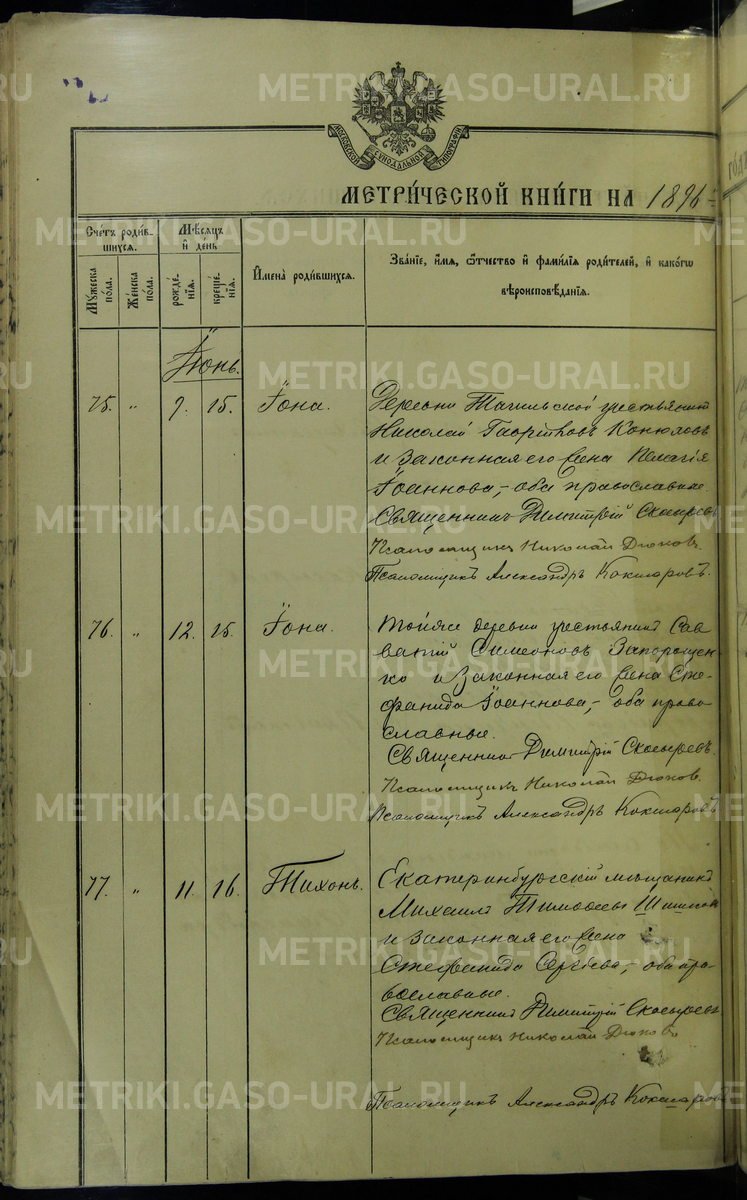 METRIKI.GASO-URAL.RU
МОСКОВСКОЙ СѴНОДАЛЬНОЙ ТИПОГРАФІИ
МЕТРИ́ЧЕСКОЙ КНИ́ГИ НА 1896
Сче́тъ роди́в-
шихся.
Мꙋ́жеска по́ла.
Же́нска по́ла.
Мѣ́сяцъ и҆ де́нь
рожде́-
нїѧ.
креще́-
нїѧ.
И҆мена̀ роди́вшихся.
Зва́нїе, и҆́мѧ, ѻ҆́тчество и҆ фами́лїѧ роди́телей, и҆ како́гѡ
вѣроисповѣ́данїѧ.
Іюнь.
75. " 9. 15. Іона.
Деревни Тагильской крестьянинъ
Николай Гавриловъ Конюховъ
и законная его жена Пелагія
Іоаннова,- оба православные.
Священникъ Димитрій Скосыревъ
Псаломщикъ Николай Дюковъ.
Псаломщикъ Александръ Кокшаровъ.
76. " 12. 15. Іона.
Тойже деревни крестьянинъ Сав-
ватій Симеоновъ Запорощен-
ко и законная его жена Сте-
фанида Іоаннова,- оба право
славные.
Священникъ Димитрій Скосыревъ.
Псаломщикъ Николай Дюковъ.
Псаломщикъ Александръ Кокшаровъ
77. " 11. 16. Тихонъ.
Екатеринбургскій мѣщанинъ
Михаилъ Тимоѳеевъ
и законная его жена
Стефанида Сергѣева,- оба пра-
вославные.
Священникъ Димитрій Скосыревъ
Псаломщикъ Николай Дюковъ
Псаломщикъ Александръ Кокшаровъ